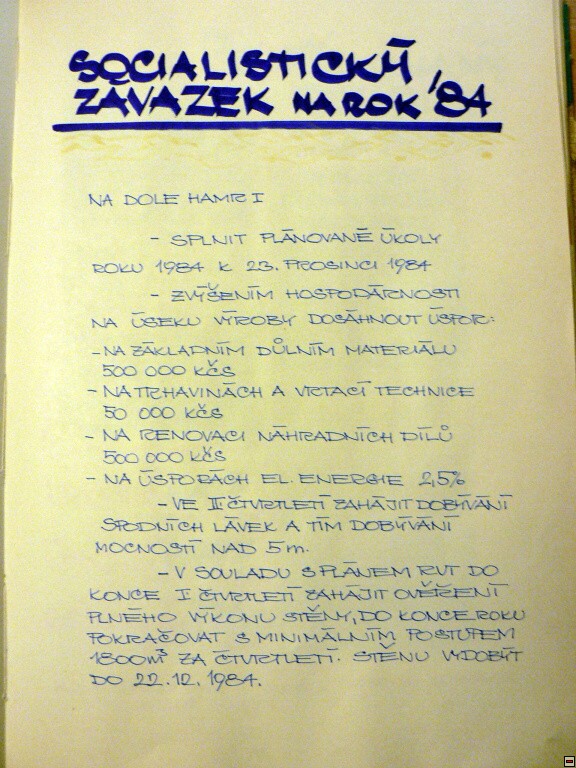 SOCIALISTICKÝ
ZÁVAZEK NA ROK '84
NA DOLE HAMR I
- SPLNIT PLÁNOVANÉ ÚKOLY
ROKU 1984 K 23. PROSINCI 1984
- ZVÝŠENÍM HOSPODÁRNOSTI
NA ÚSEKU VÝROBY DOSÁHNOUT ÚSPOR:
- NA ZÁKLADNÍM DŮLNÍM MATERIÁLU
500 000 KČS
- NA TRHAVINÁCH A VRTACÍ TECHNICE
50 000 KČS
- NA RENOVACI NÁHRADNÍCH DÍLŮ
500 000 KČS
- NA ÚSPORÁCH EL. ENERGIE 2,5%
- VE II ČTVRTLETÍ ZAHÁJIT DOBÝVÁNÍ
SPODNÍCH LÁVEK A TÍM DOBÝVÁNÍ
MOCNOSTÍ NAD 5m.
- V SOULADU S PLÁNEM RVT DO
KONCE I ČTVRTLETÍ ZAHÁJIT OVĚŘENÍ
PLNÉHO VÝKONU STĚNY, DO KONCE ROKU
POKRAČOVAT S MINIMÁLNÍM POSTUPEM
1800m³ ZA ČTVRTLETÍ. STĚNU VYDOBÝT
DO 22.12.1984.